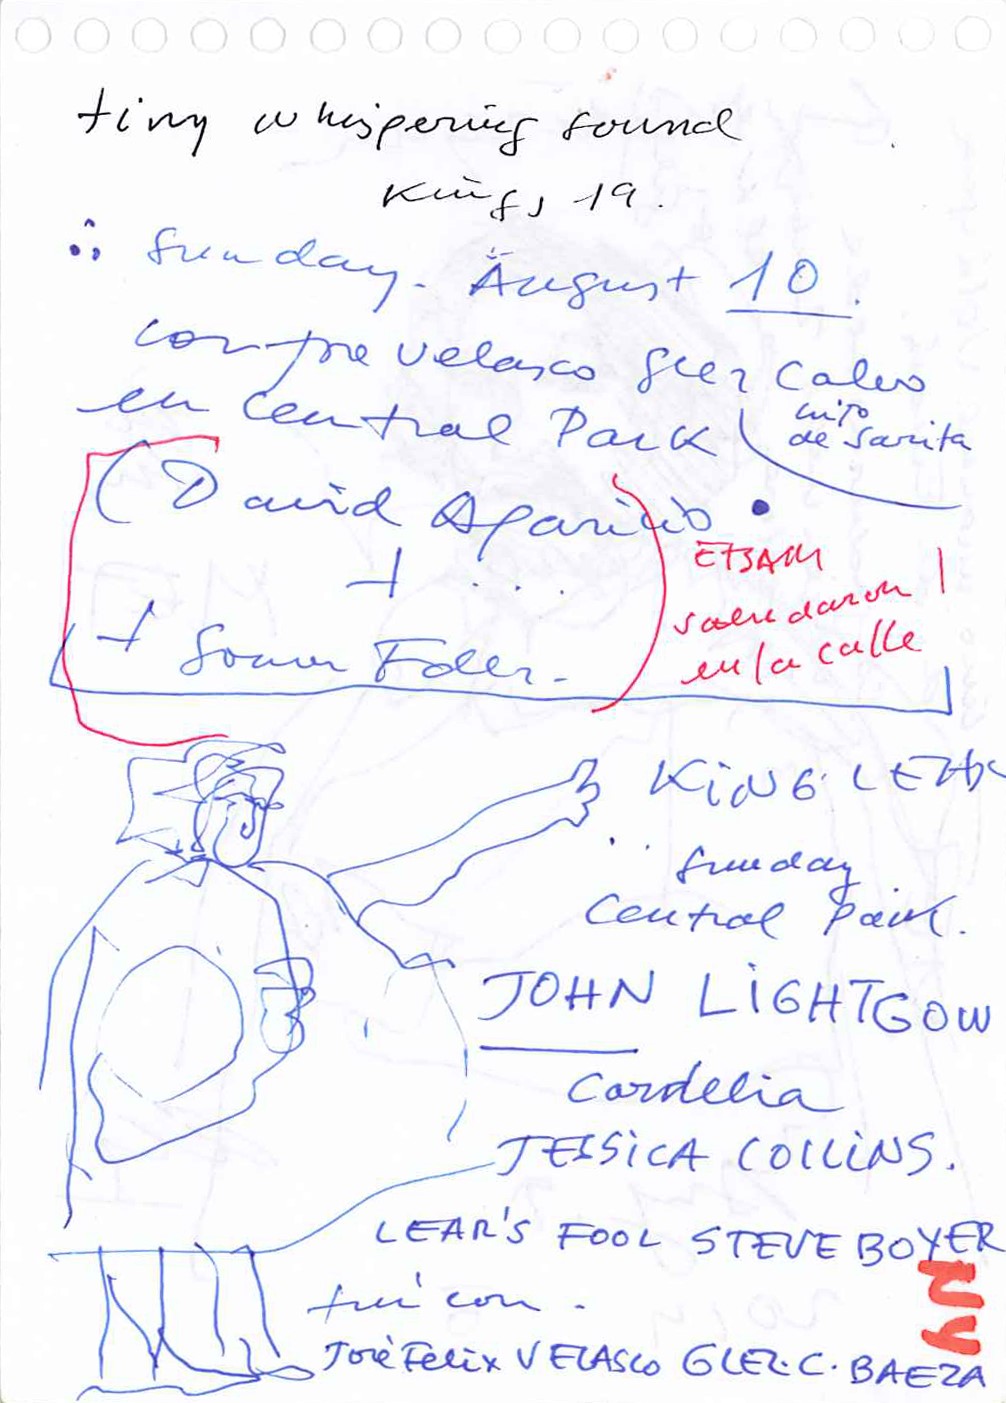 tiny whispering sound
Kings 19.
Sunday. August 10.
con Velasco Glez Calvo
en Central Park
hijo
de Sarita
(David Aparicio)
+ . . .
+ Fdez.
ETSAM
saludaron
en la calle
KING LEAR
Sunday
Central Park.
JOHN LIGHTGOW
Cordelia
JESSICA COLLINS.
LEAR'S FOOL STEVE BOYER
fui con.
José Felix VELASCO GLEZ.C.BAEZA
NY